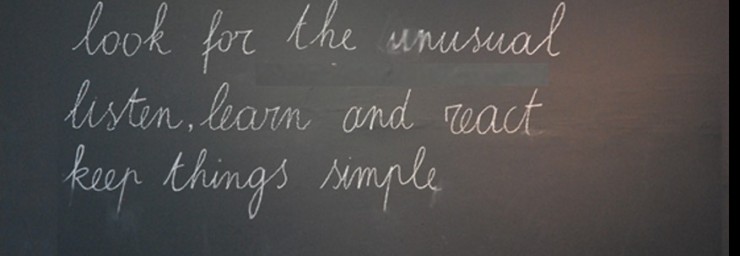 look for the unusual
listen, learn and react
keep things simple